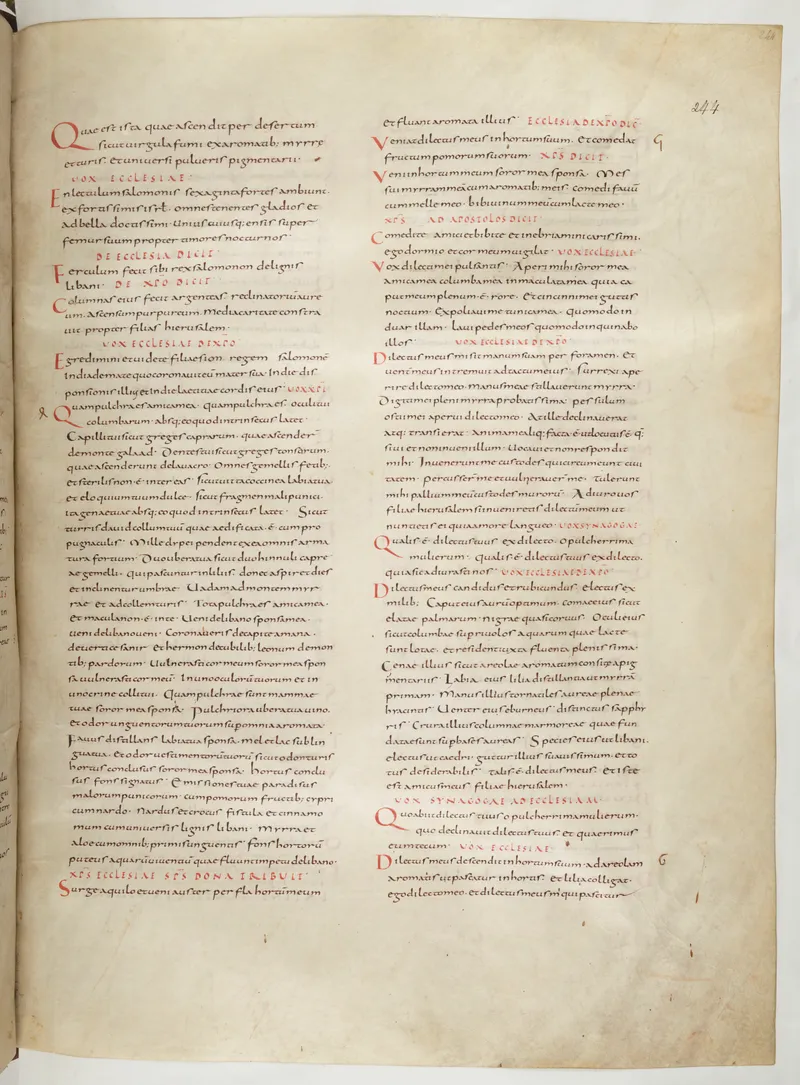 244
Quae est ista quae ascendit per desertum
sicut uirgula fumi ex aromatib; myrre
et turis. et uniuersi pulueris pigmentarii.
VOX ECCLESIAE
En lectulum salomonis sexaginta fortes ambiunt.
ex fortissimis isrt. omnes tenentes gladios et
ad bella doctissimi. Uniuscuiusq; ensis super
femur suum propter amores nocturnos.
DE ECCLESIA DICIT
Ferculum fecit sibi rex salomon on de lignis
libani. DE XPO DICIT
Columnas eius fecit argenteas. reclinatoriū aure
um. ascensum purpureum. media caritate constra
uit propter filias hierusalem.
VOX ECCLESIAE DE XPO
Egredimini et uidete filiae sion. regem salomonē
in diademate quo coronauit eū mater sua. In die dis
ponsionis illius et in die laetitiae cordis eius. VOX XPI
Quam pulchra es amica mea. quam pulchra es. oculi tui
columbarum. absq; eo quod intrinsecus latet.
Capilli tui sicut greges caprarum. quae ascender
de monte galaad. Dentes tui sicut greges tonsarum.
quae ascenderunt de lauacro. Omnes gemellis fetib;
et sterilis non ÷ inter eas. sicut uitta coccinea labia tua.
et eloquium tuum dulce. sicut fragmen mali punici.
ita genae tuae absq; eo quod intrinsecus latet. Sicut
turris dauid collum tuū quae aedificata. ÷ cum pro
pugnaculis. Mille clypei pendent ex ea omnis arma
tura fortium. Duo ubera tua sicut duo hinnuli capre
ae gemelli. qui pascuntur in liliis. donec aspiret dies
et inclinentur umbrae. Uadam ad montem myr
rae. et ad collem turis. Tota pulchra es amica mea.
et macula non ÷ in te. Ueni de libano sponsa mea.
ueni de libano ueni. Coronaueris de capite amana.
de uertice sanir. et hermon de cubilib; leonum de mon
tib; pardorum. Uulnerasti cor meum soror mea spon
sa uulnerasti cor meū. In uno oculorū tuorum et in
uno crine colli tui. Quam pulchrae sunt mammae
tuae soror mea sponsa. Pulchriora ubera tua uino.
et odor unguentorum tuorum super omnia aromata.
Fauus distillans labia tua sponsa. mel et lac sub lin
gua tua. et odor uestimentorū tuorū sicut odor turis.
hortus conclusus soror mea sponsa. hortus conclu
sus fons signatus. Emissiones tuae paradisus
malorum punicorum. cum pomorum fructib; cypri
cum nardo. Nardus et crocus fistula et cinnamo
mum cum uniuersis lignis libani. Myrra et
aloe cum omnib; primis unguentis. fons hortorū
puteus aquarū uiuentiū quae fluunt impetu de libano.
XPS ECCLESIAE SPS DONA TRIBUIT
Surge aquilo et ueni auster perfla hortū meum
et fluant aromata illius. ECCLESIA DE XPO DIC
Veniat dilectus meus in hortum suum. et comedat
fructum pomorum suorum. XPS DICIT
Veni in hortum meum soror mea sponsa. Mes
sui myrram meā cum aromatib; meis. comedi fauū
cum melle meo. bibi uinum meū cum lacte meo.
XPS AD APOSTOLOS DICIT
Comedite amici et bibite et inebriamini carissimi.
ego dormio et cor meum uigilat. VOX ECCLESIAE
Vox dilecti mei pulsantis. Aperi mihi soror mea
amica mea columba mea inmaculata mea. quia ca
put meum plenum. ÷ rore. et cincinni mei guttis
noctium. Expoliaui me tunica mea. Quomodo in
duar illam. Laui pedes meos quomodo inquinabo
illos. VOX ECCLESIAE DE XPO
Dilectus meus misit manum suam per foramen. et
uenter meus intremuit ad tactum eius. surrexi ape
rire dilecto meo. manus meae stillauerunt myrra.
Digiti mei pleni myrra probatissima. pessulum
ostii mei aperui dilecto meo. At ille declinauerat
atq: transierat. Anima mea liq:facta ÷ ut locutus ÷. q̄
siui et non inueni illum. Uocaui et non respondit
mihi. Inuenerunt me custodes qui circumeunt ciui
tatem. percusser̄ me et uulnerauer̄ me. tulerunt
mihi pallium meū custodes murorū. Adiuro uos
filiae hierusalem si inueneritis dilectū meum ut
nuntietis ei quia amore langueo. VOX SYNAGOGAE
Qualis ÷ dilectus tuus ex dilecto. o pulcherrima
mulierum. qualis ÷ dilectus tuus ex dilecto.
quia sic adiurasti nos. VOX ECCLESIAE DE XPO
Dilectus meus candidus et rubicundus. electus ex
milib; Caput eius aurū optimum. comae eius sicut
elatae palmarum. nigrae quasi coruus. Oculi eius
sicut columbae sup riuolos aquarum quae lacte
sunt lotae. et resident iuxta fluenta plenissima.
Genae illius sicut areolae aromatum consitae a pig
mentariis. Labia eius lilia distillantia myrrā
primam. Manus illius tornatiles aureae plenae
hyacintis. Uenter eius eburneus distinctus sapphy
ris. Crura illius columnae marmoreae quae fun
datae sunt sup bases aureas. Species eius ut libani.
electus ut caedri. guttur illius suauissimum. et to
tus desiderabilis. talis ÷ dilectus meus. et iste
est amicus meus filiae hierusalem.
VOX SYNAGOGAE AD ECCLESIAM
Quo abiit dilectus tuus o pulcherrima mulierum.
quo declinauit dilectus tuus et quaerimus
eum tecum. VOX ECCLESIAE
Dilectus meus descendit in hortum suum. ad areolam
aromatis ut pascatur in hortis. et lilia colligat.
ego dilecto meo. et dilectus meus m̄ qui pascitur